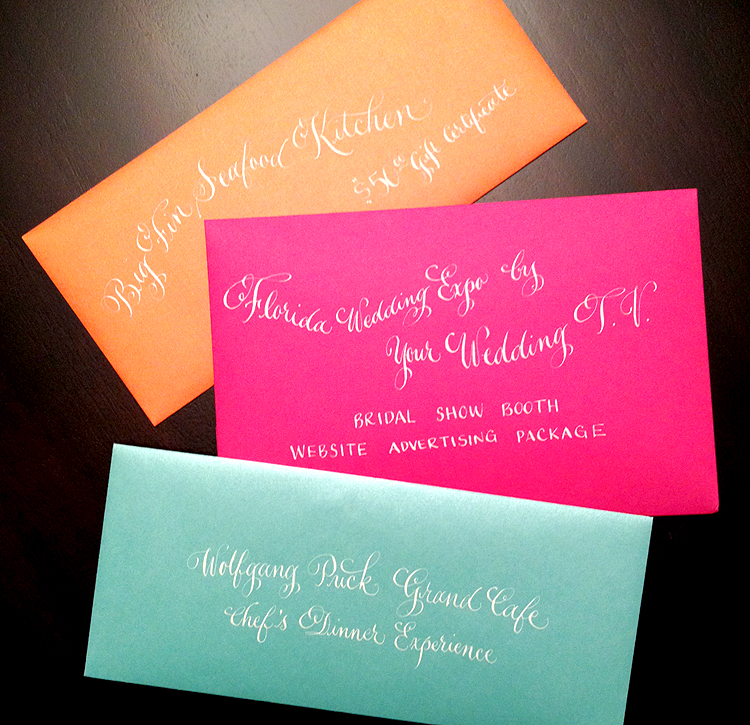 Big Fin Seafood Kitchen
$50⁰⁰ Gift Certificate
Florida Wedding Expo by
Your Wedding T.V.
BRIDAL SHOW BOOTH
WEBSITE ADVERTISING PACKAGE
Wolfgang Puck Grand Cafe
Chef's Dinner Experience